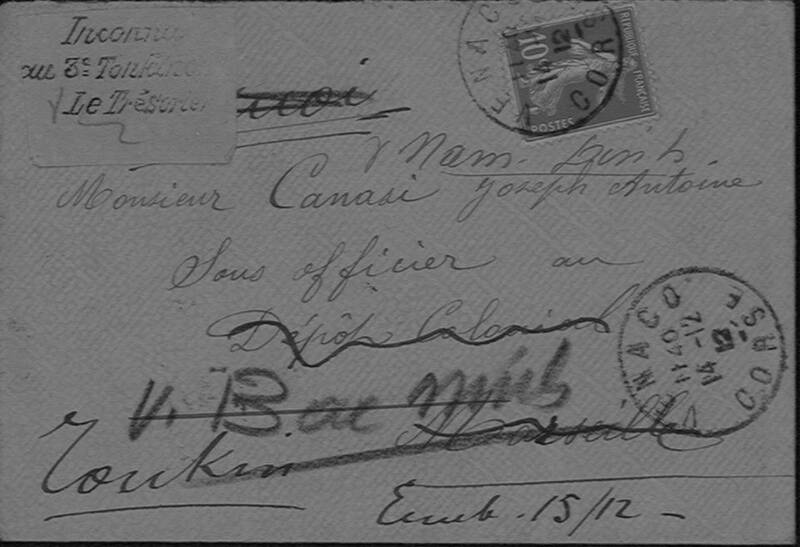 Inconnu
au 3e Tonkinois
Le Trésorier
VENACO
CORSE
10
RÉPUBLIQUE FRANÇAISE
POSTES
Nam-Dinh
Monsieur Canasi Joseph Antoine
Sous officier au
Dépôt Colonial
VENACO
CORSE
11 40
14-12
12
V. Bac Ninh
Marseille
Tonkin
Emb. 15/12